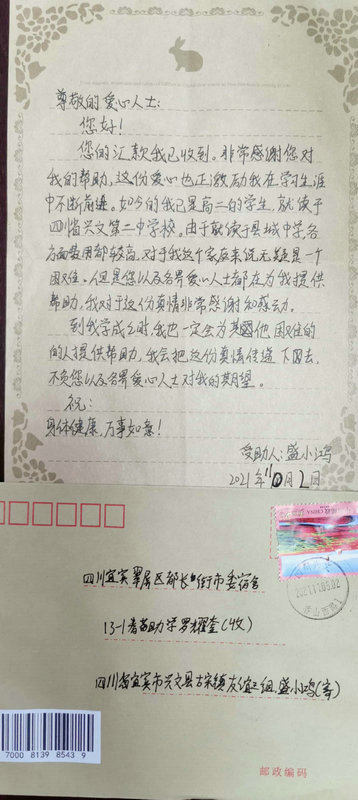 尊敬的爱心人士:
您好!
您的汇款我已收到。非常感谢您对
我的帮助,这份爱心也正激励我在学习生涯
中不断前进。如今的我已是高二的学生,就读于
四川省兴文第二中学校,由于就读于县城中学,各
方面费用都较高,对于我这个家庭来说无疑是一个
困难。但是您以及各界爱心人士都在为我提供
帮助,我对于这份真情非常感谢和感动。
到我学成之时我也一定会为其他困难的
的人提供帮助,我会把这份真情传递下去,
不负您以及各界爱心人士对我的期望。
祝:
身体健康,万事如意!
受助人:盛小鸿
2021年11月2日
四川宜宾翠屏区都长街市委宿舍
13-1青苗助学罗耀奎(收)
四川省宜宾市兴文县古宋镇友谊二组,盛小鸿(寄)
7000 8139 8543 9
邮政编码